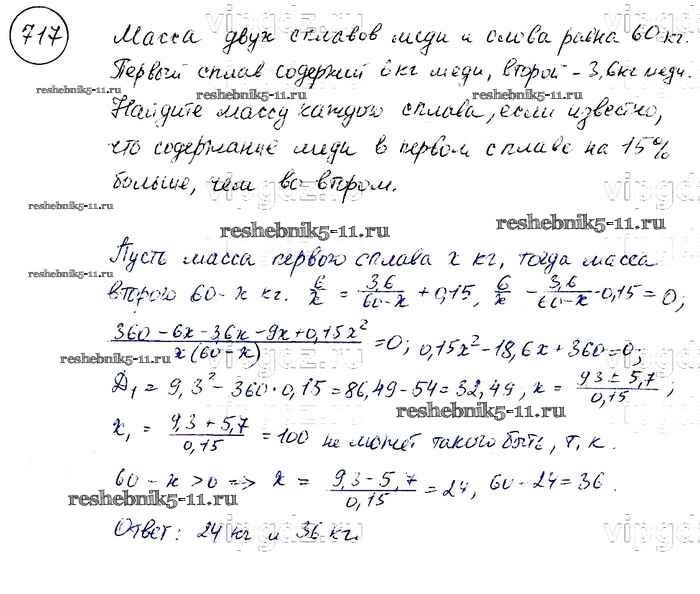 717
Масса двух сплавов меди и олова равна 60 кг.
Первый сплав содержит 6 кг меди, второй – 3,6 кг меди.
Найдите массу каждого сплава, если известно,
что содержание меди в первом сплаве на 15%
больше, чем во втором.
Пусть масса первого сплава x кг, тогда масса
второго 60-x кг. 6/x = 3,6/(60-x) + 0,15, 6/x - 3,6/(60-x) - 0,15 = 0;
(360 - 6x - 3,6x - 9x + 0,15x²)/(x(60-x)) = 0; 0,15x² - 18,6x + 360 = 0;
Д₁ = 9,3² - 360·0,15 = 86,49 - 54 = 32,49, x = (9,3 ± 5,7)/0,15;
x₁ = (9,3 + 5,7)/0,15 = 100 не может такого быть, т.к.
60 - x > 0 => x = (9,3 - 5,7)/0,15 = 24, 60 - 24 = 36.
Ответ: 24 кг и 36 кг.
reshebnik5-11.ru
reshebnik5-11.ru
reshebnik5-11.ru
reshebnik5-11.ru
reshebnik5-11.ru
reshebnik5-11.ru
reshebnik5-11.ru
reshebnik5-11.ru
reshebnik5-11.ru
reshebnik5-11.ru